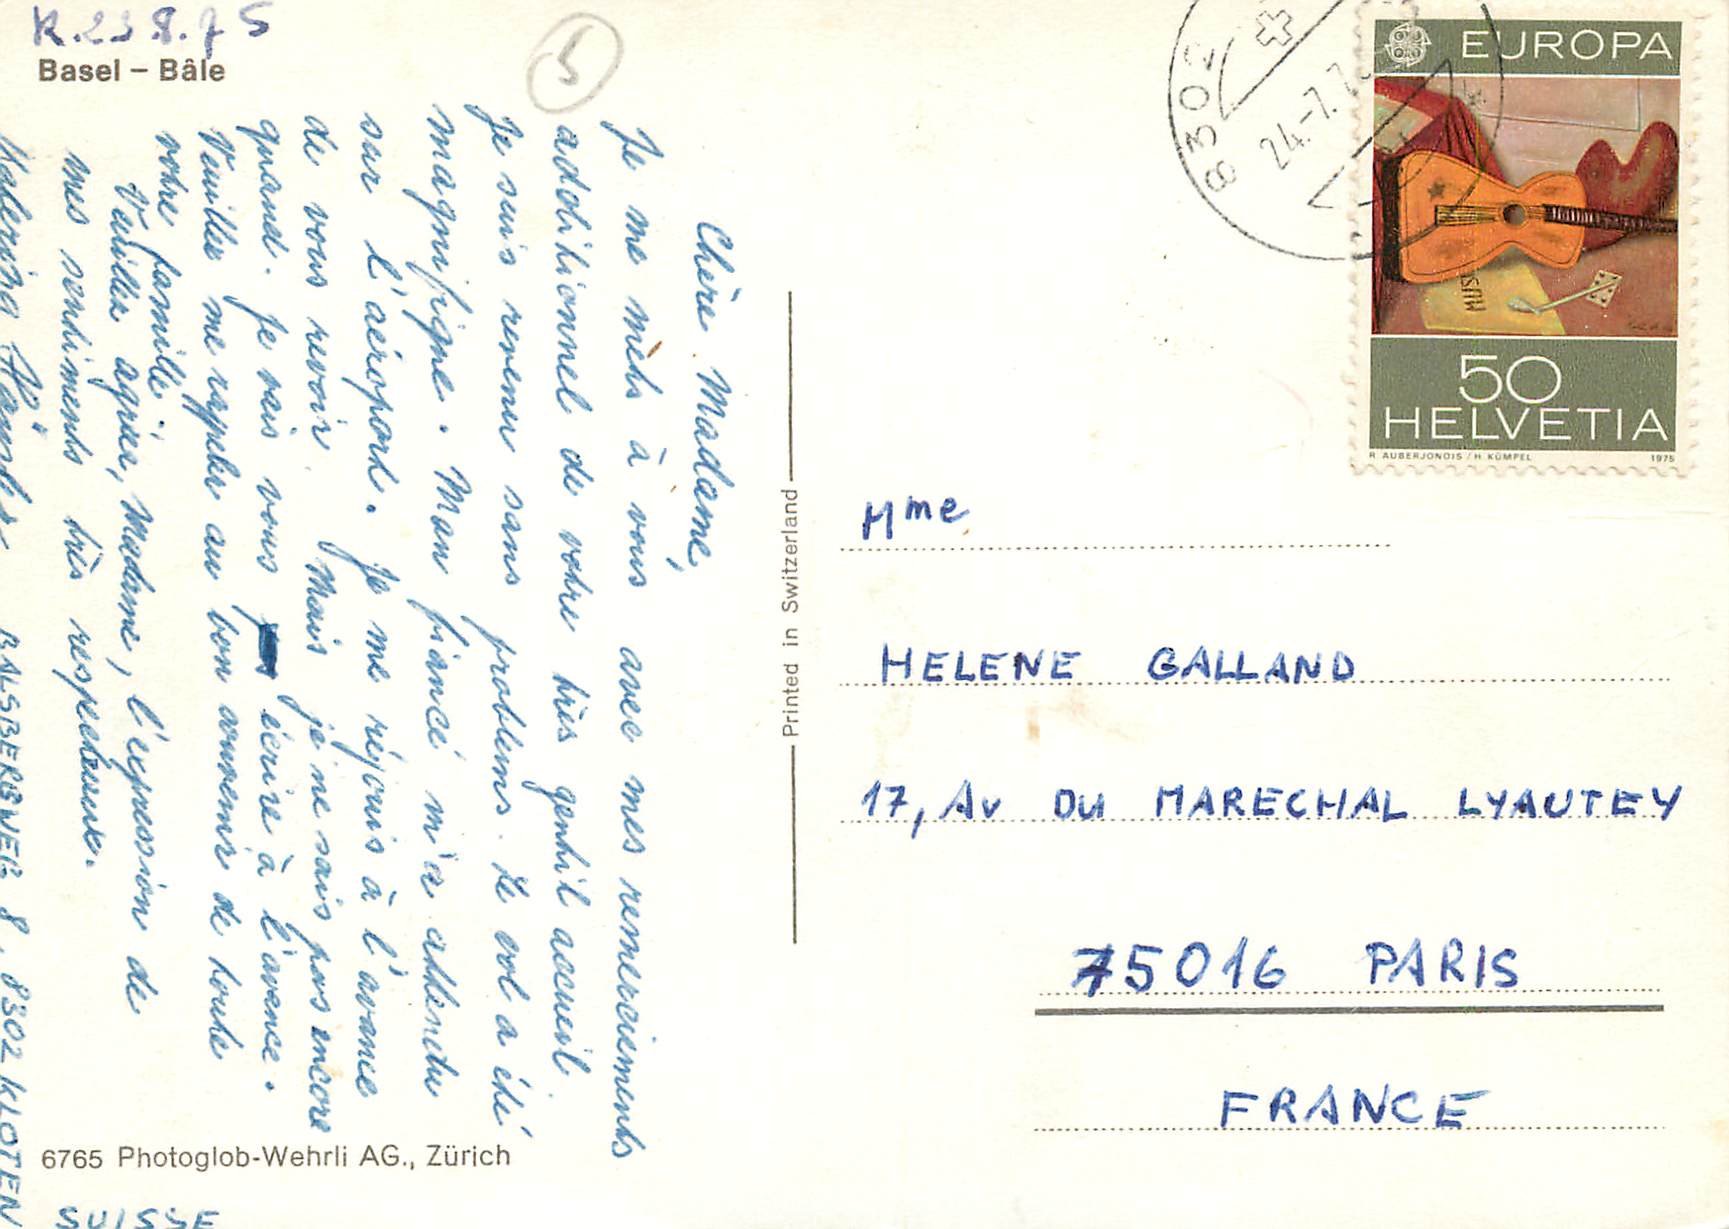 R.23 8.75
Basel – Bâle
5
Chère Madame,
Je me mets à vous avec mes remerciements
additionnel de votre très gentil accueil.
Je suis revenu sans problems. Le vol a été
magnifique. Mon fiancé m'a attendu
sur l'aéroport. Je me réjouis à l'avance
de vous revoir. Mais je ne sais pas encore
quand. Je vais vous écrire à l'avence.
Veuillez me rappeler au bon souvenir de toute
votre famille.
Veuillez agréer, Madame, l'expression de
mes sentiments très respectueux.
Katerina
BALSBERGWEG 8, 8302 KLOTEN
SUISSE
6765 Photoglob-Wehrli AG., Zürich
Printed in Switzerland
8302
24.-7.7
EUROPA
MUS
50
HELVETIA
R AUBERJONOIS / H KÜMPEL 1975
Mme
HELENE GALLAND
17, AV DU MARECHAL LYAUTEY
75016 PARIS
FRANCE